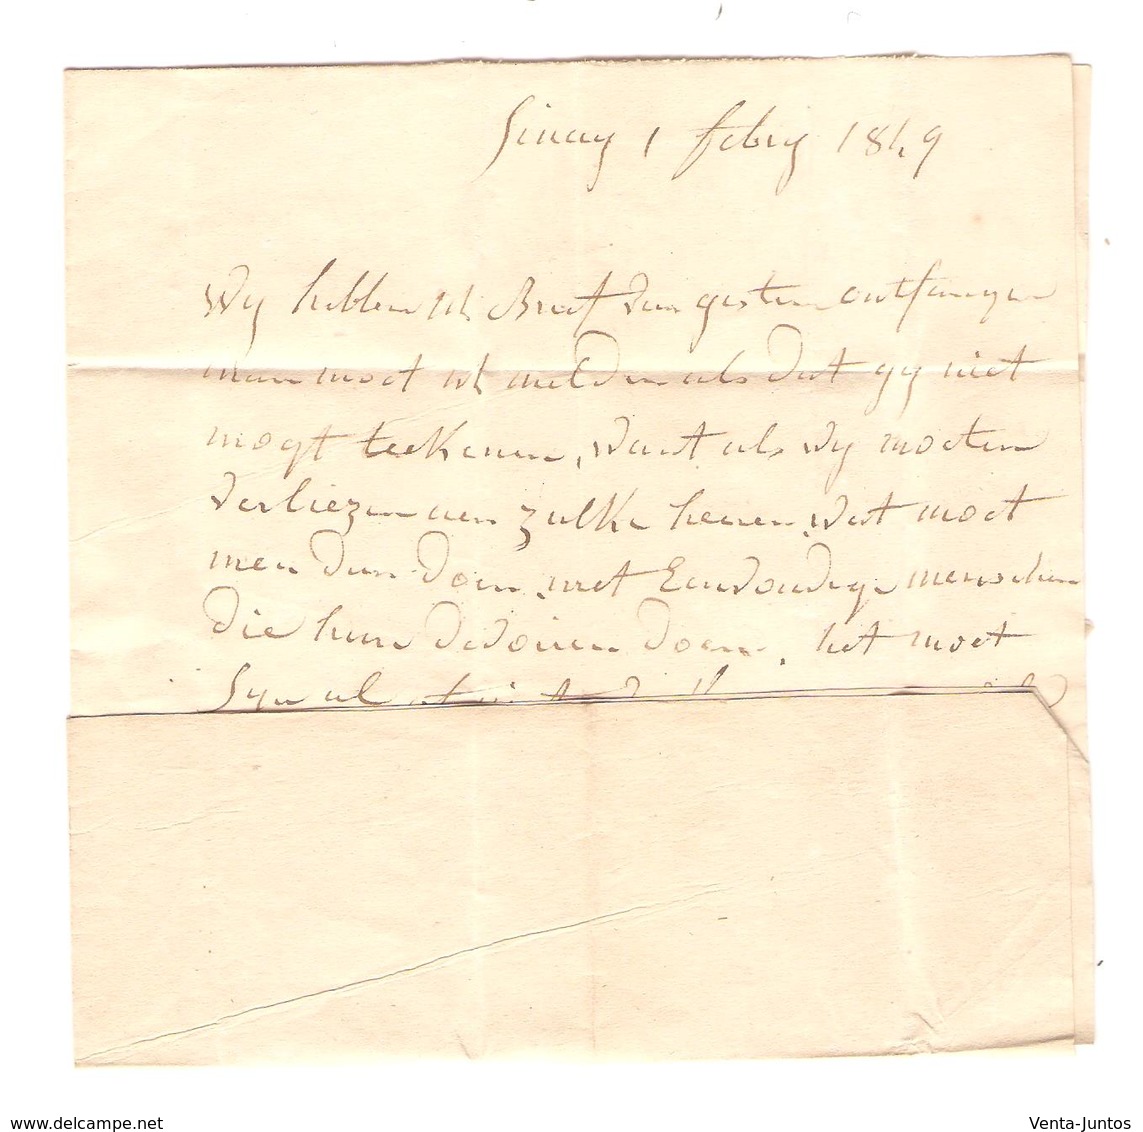 Sinay 1 febry 1849
Wy hebben uh Brief van gisteren ontfangen
man moet uh melden als dat gy niet
mogt teekenen, want als wy moeten
verliezen aen zulke heeren, wat moet
men dan doen, met Eenvoudige menschen
die hun devoiren doen, het moet
Syn al
www.delcampe.net
Venta-Juntos